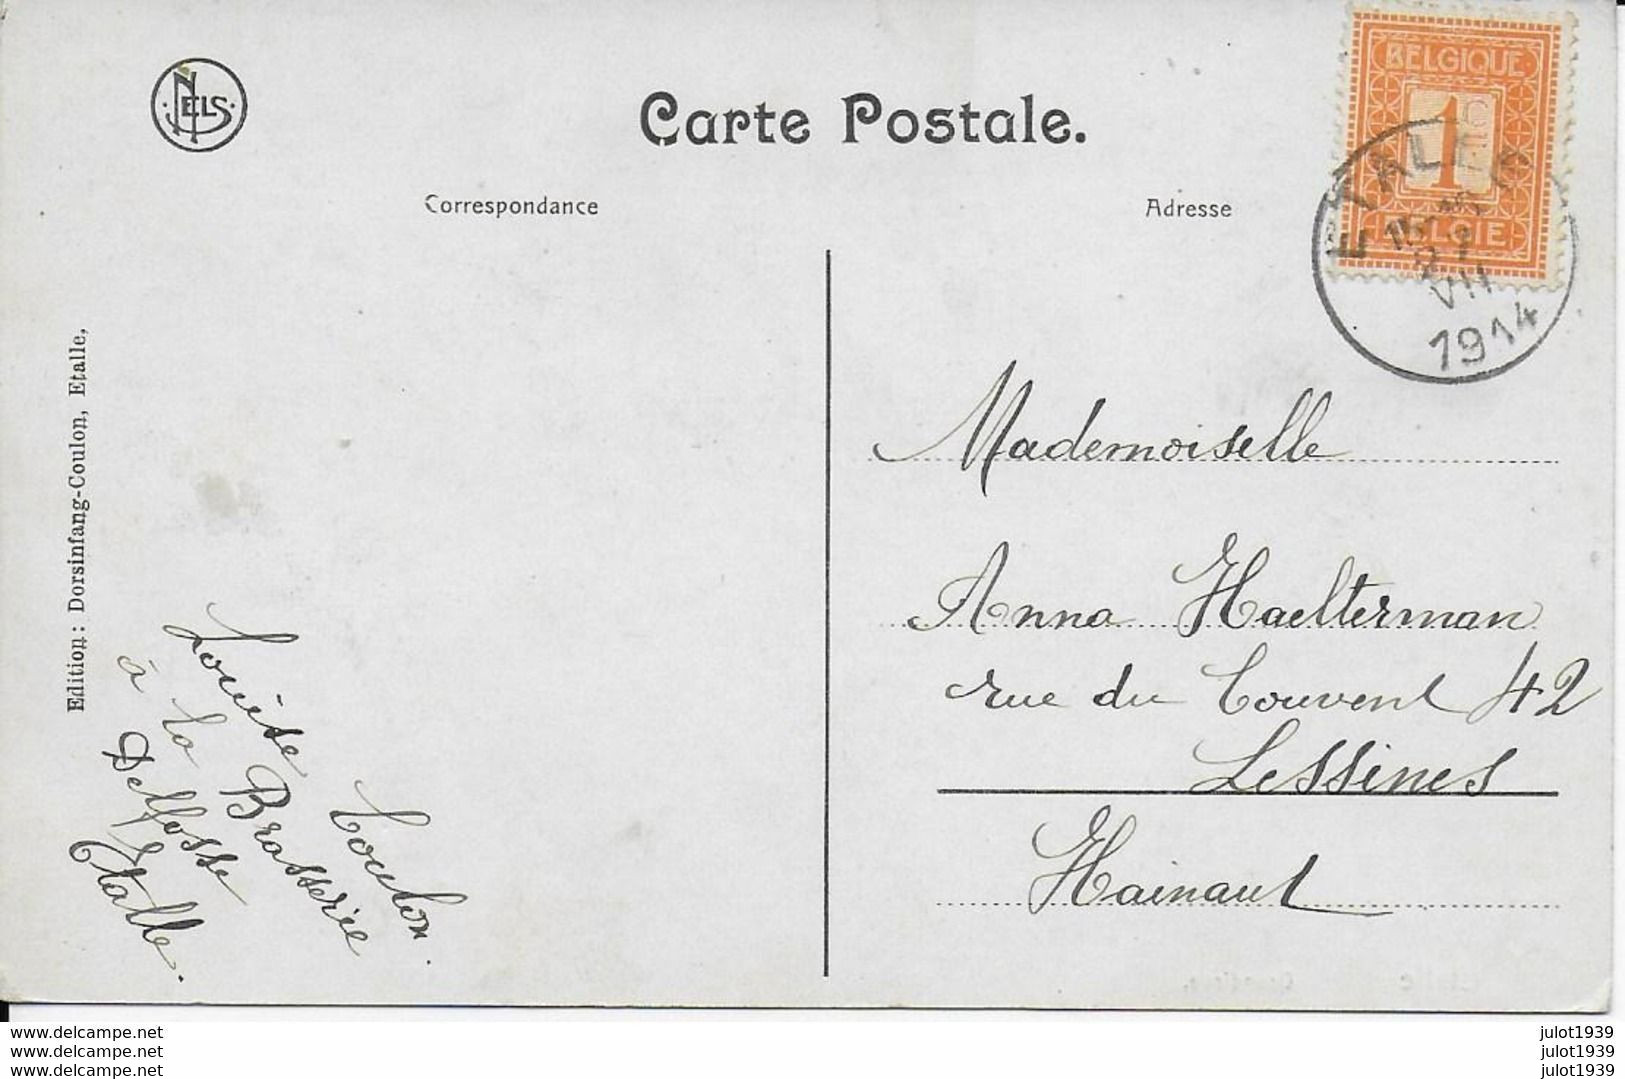 NELS
Carte Postale.
Correspondance
Adresse
BELGIQUE
1 C
BELGIE
ETALLE
VII
1914
Edition: Dorsinfang-Coulon, Etalle,
Mademoiselle
Anna Haelterman
rue du Couvent 42
Lessines
Hainaut
Louise Coulon
à la Brasserie
Delfosse
Etalle.
www.delcampe.net
www.delcampe.net
www.delcampe.net
julot1939
julot1939
julot1939